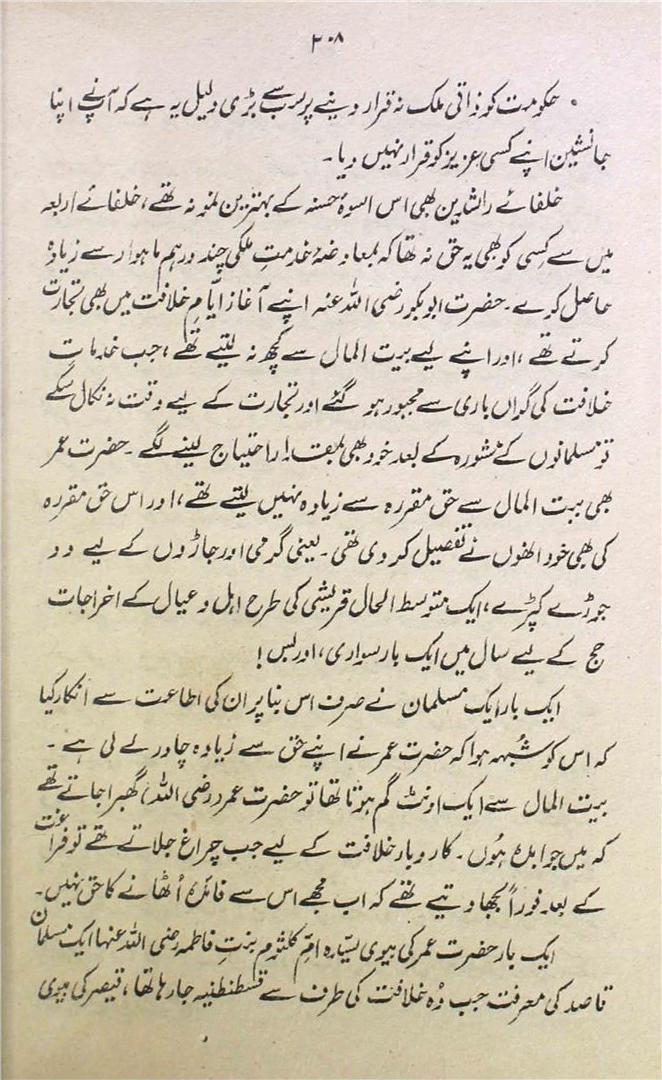 ۲۰۸
حکومت کو ذاتی ملک نہ قرار دینے پر سب سے بڑی دلیل یہ ہے کہ آپ نے اپنا
جانشین اپنے کسی عزیز کو قرار نہیں دیا۔
خلفائے راشدین بھی اس اسوۂ حسنہ کے بہترین نمونہ تھے، خلفائے اربعہ
میں سے کسی کو بھی یہ حق نہ تھا کہ بمعاوضۂ خدمتِ ملکی چند درہم ماہوار سے زیادہ
حاصل کرے۔ حضرت ابوبکر رضی اللہ عنہ اپنے آغاز ایّامِ خلافت میں بھی تجارت
کرتے تھے، اور اپنے لیے بیت المال سے کچھ نہ لیتے تھے، جب خدمات
خلافت کی گراں باری سے مجبور ہو گئے اور تجارت کے لیے وقت نہ نکال سکے
تو مسلمانوں کے مشورہ کے بعد خود بھی بقدر احتیاج لینے لگے۔ حضرت عمر
بھی بیت المال سے حق مقررہ سے زیادہ نہیں لیتے تھے، اور اس حق مقررہ
کی بھی خود انھوں نے تفصیل کر دی تھی۔ یعنی گرمی اور جاڑوں کے لیے دو
جوڑے کپڑے، ایک متوسط الحال قریشی کی طرح اہل و عیال کے اخراجات
حج کے لیے سال میں ایک بار سواری، اور بس!
ایک بار ایک مسلمان نے صرف اس بنا پر ان کی اطاعت سے انکار کیا
کہ اس کو شُبہہ ہوا کہ حضرت عمر نے اپنے حق سے زیادہ چادر لے لی ہے۔
بیت المال سے ایک اونٹ گم ہوتا تھا تو حضرت عمر (رضی اللہ) گھبرا جاتے تھے
کہ میں جوابدہ ہُوں۔ کاروبار خلافت کے لیے جب چراغ جلاتے تھے تو فراغت
کے بعد فوراً بجھا دیتے تھے کہ اب مجھے اس سے فائدہ اُٹھانے کا حق نہیں۔
ایک بار حضرت عمر کی بیوی سیّدہ امّ کلثوم بنتِ فاطمہ رضی اللہ عنہا ایک مسلمان
قاصد کی معرفت جب وُہ خلافت کی طرف سے قسطنطنیہ جا رہا تھا، قیصر کی بیوی